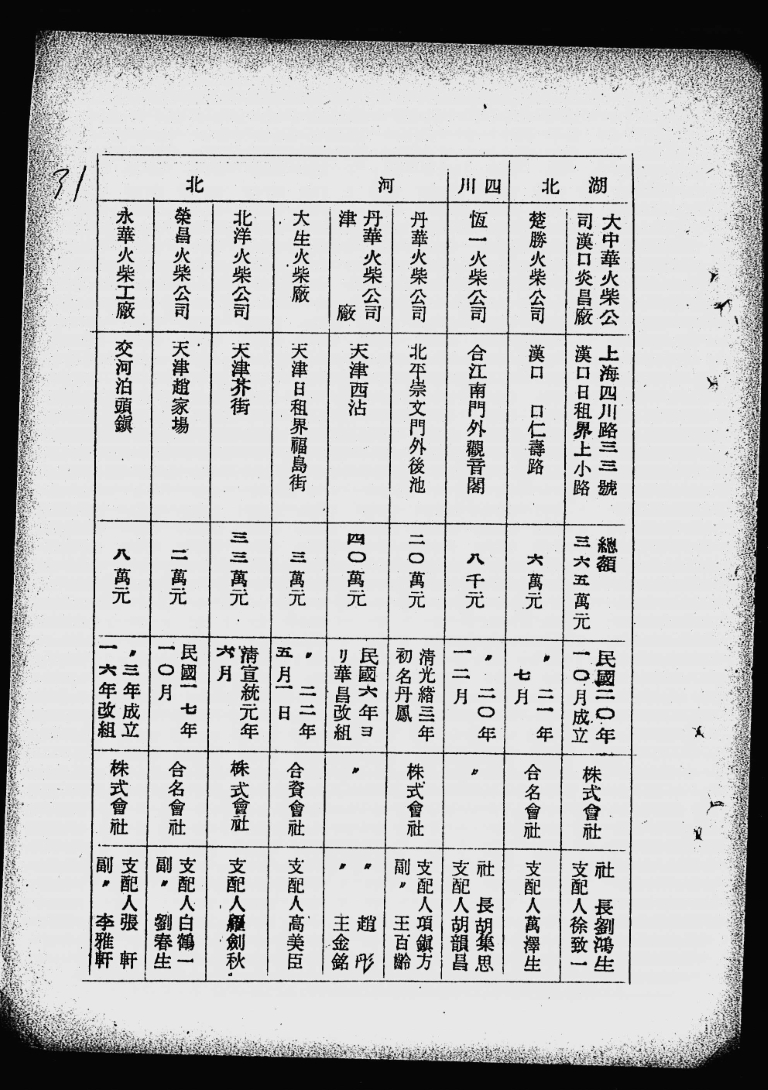 31
湖北
大中華火柴公
司漢口炎昌廠
上海四川路三三號
漢口日租界上小路
總額
三六五萬元
民國二〇年
一〇月成立
株式會社
社長劉鴻生
支配人徐致一
楚勝火柴公司
漢口 口仁壽路
六萬元
〃二一年
七月
合名會社
支配人萬澤生
四川
恆一火柴公司
合江南門外觀音閣
八千元
〃二〇年
一二月
〃
社長胡集思
支配人胡韻昌
河北
丹華火柴公司
北平崇文門外後池
二〇萬元
清光緒三年
初名丹鳳
株式會社
支配人項鎭方
副〃王百齡
丹華火柴公司
津廠
天津西沽
四〇萬元
民國六年ヨ
リ華昌改組
〃
〃趙彤
〃王金銘
大生火柴廠
天津日租界福島街
三萬元
〃二二年
五月一日
合資會社
支配人高美臣
北洋火柴公司
天津芥街
三三萬元
清宣統元年
六月
株式會社
支配人羅劍秋
榮昌火柴公司
天津趙家場
二萬元
民國一七年
一〇月
合名會社
支配人白鶴一
副〃劉春生
永華火柴工廠
交河泊頭鎭
八萬元
〃三年成立
一六年改組
株式會社
支配人張軒
副〃李雅軒